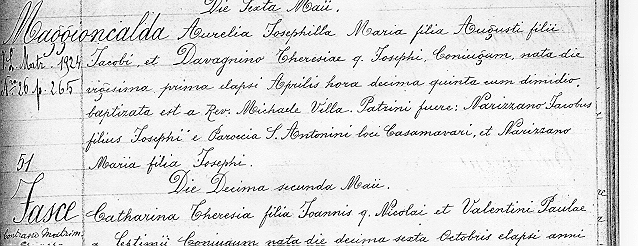 Die Sexta Maii.
Maggioncalda Aurelia Josephilla Maria filia Augusti filii
Jacobi et Davagnino Theresiae q. Josephi, Coniugum, nata die
1924
vigesima prima elapsi Aprilis hora decima quinta cum dimidio,
Nº 26 p. 265
baptizata est a Rev. Michaele Villa. Patrini fuere: Narizzano Jacobus
filius Josephi e Paroecia S. Antonini loci Casamavari, et Narizzano
51 Maria filia Josephi.
Die Decima secunda Maii.
Fasce Catharina Theresia filia Joannis q. Nicolai et Valentini Paulae
Coniugum nata die decima sexta Octobris elapsi anni